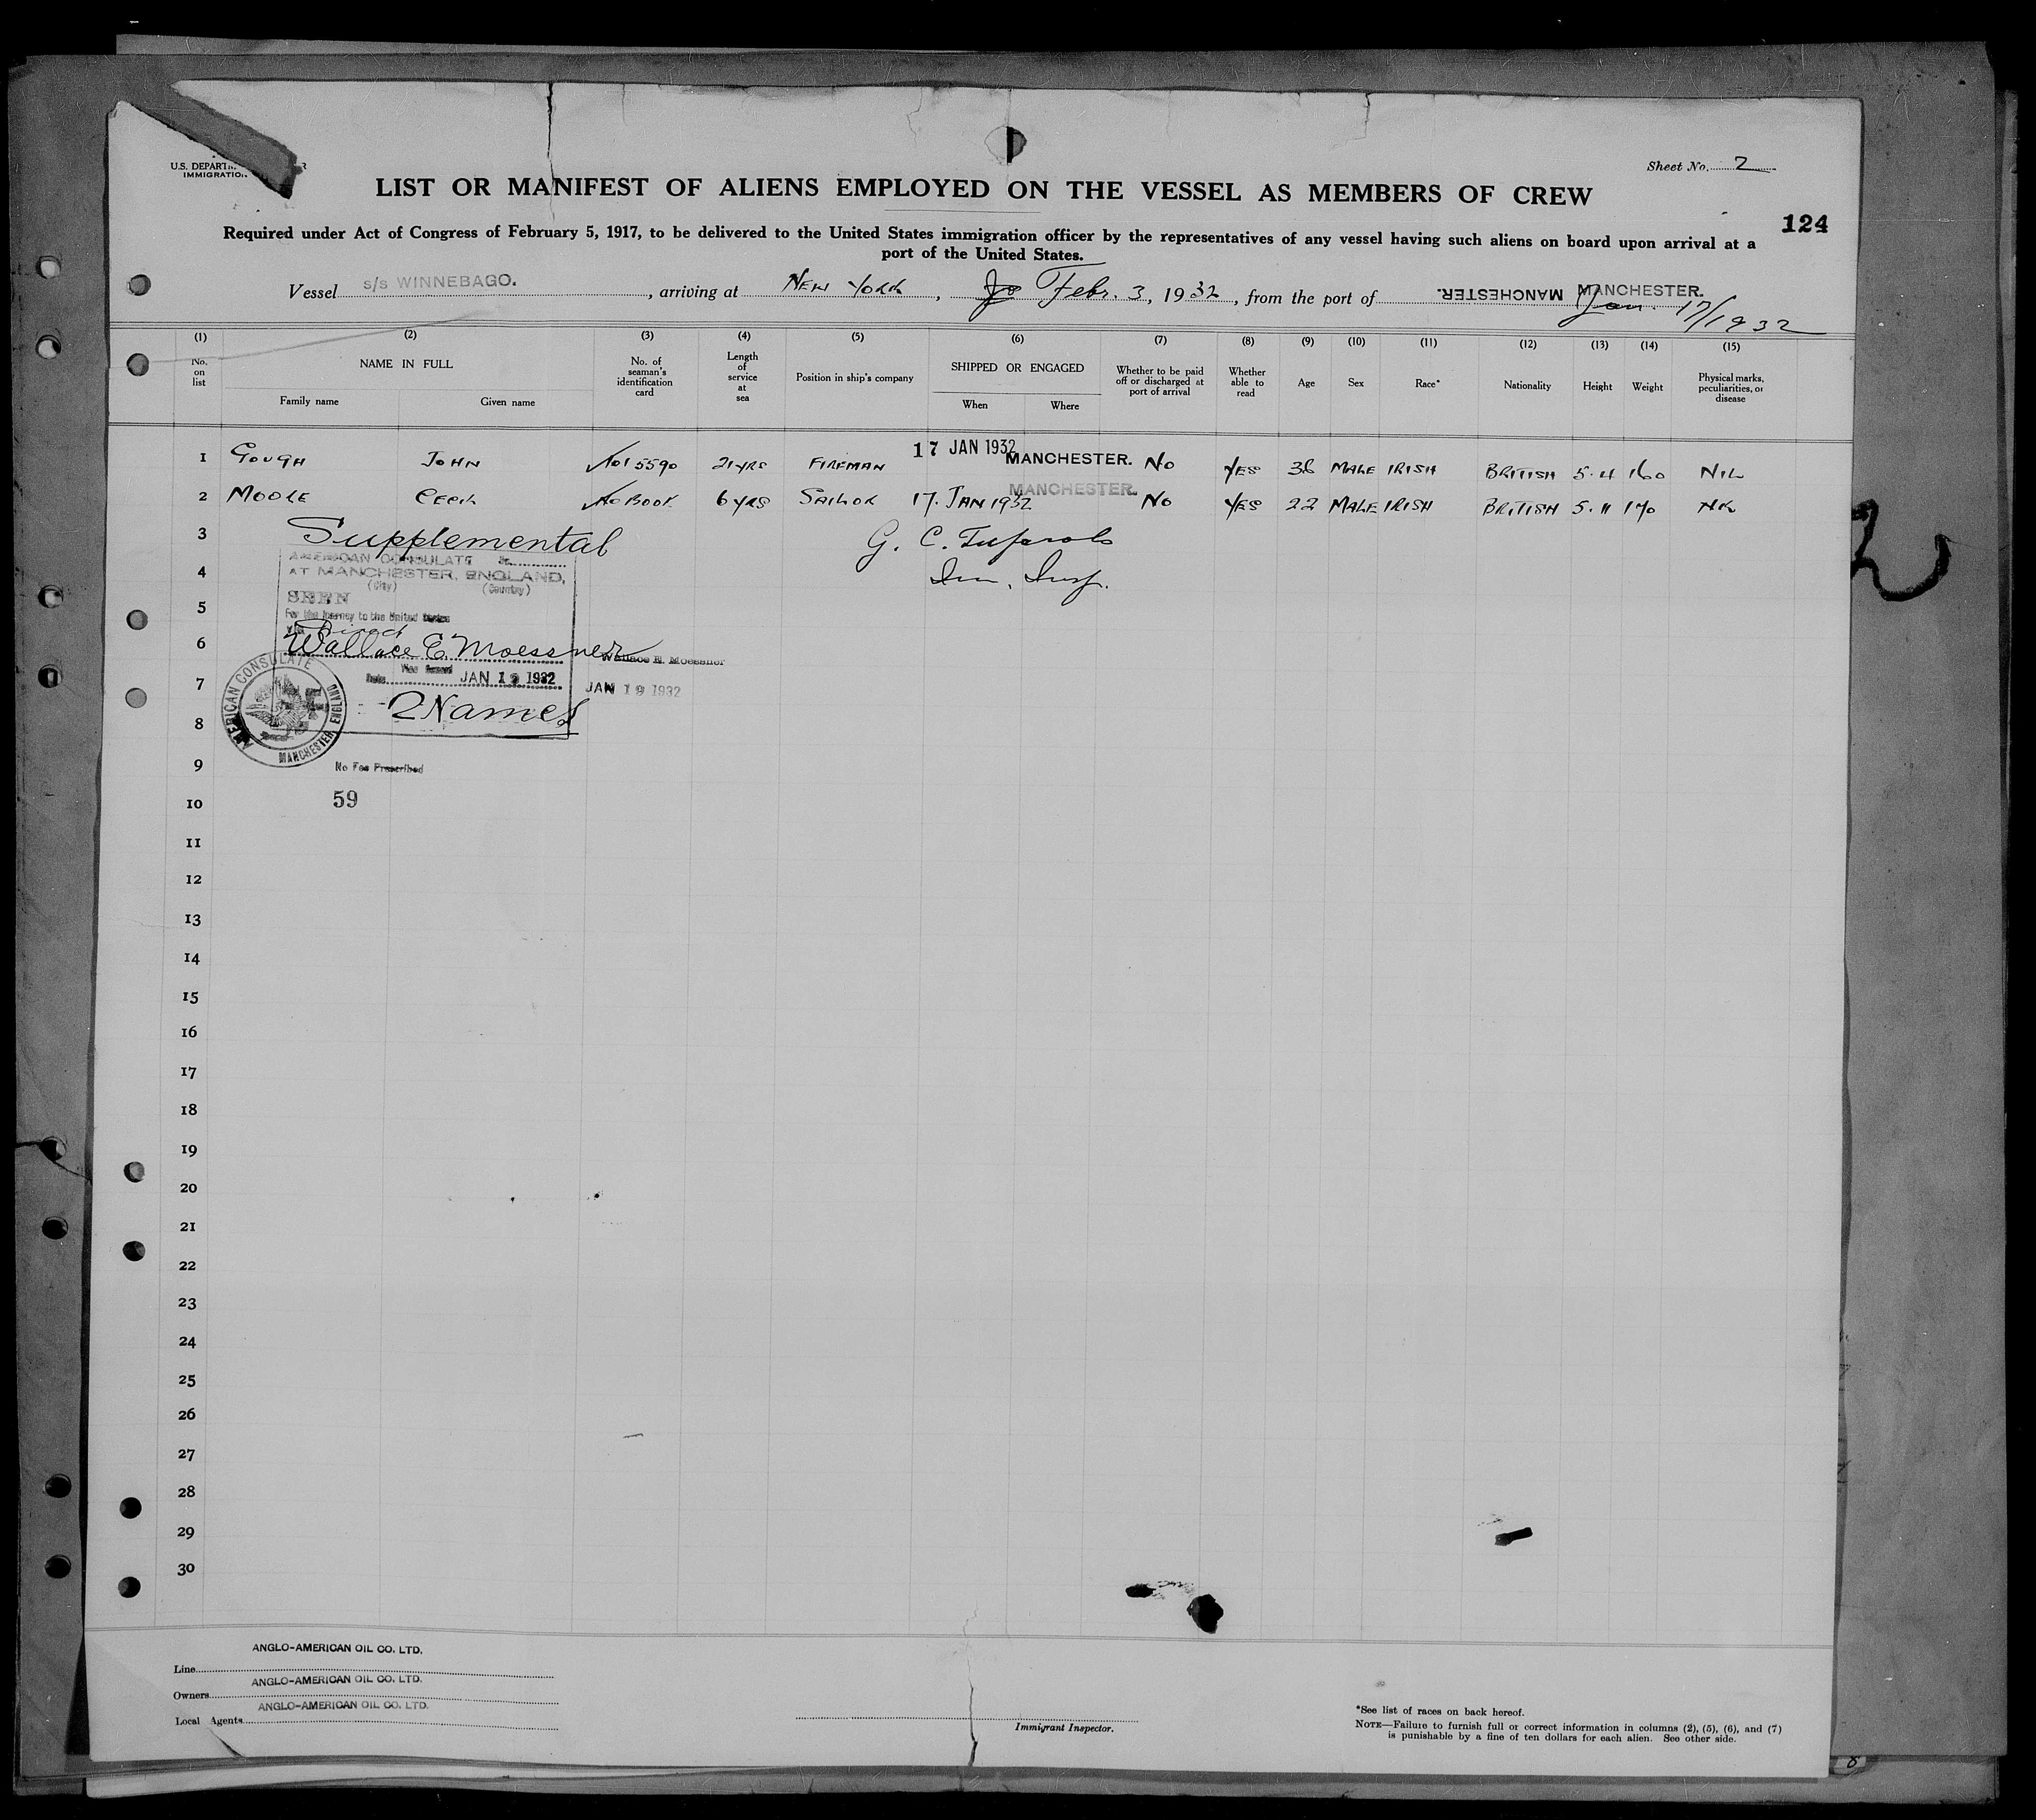 U.S. DEPART
IMMIGRATION
Sheet No. 2
LIST OR MANIFEST OF ALIENS EMPLOYED ON THE VESSEL AS MEMBERS OF CREW
124
Required under Act of Congress of February 5, 1917, to be delivered to the United States immigration officer by the representatives of any vessel having such aliens on board upon arrival at a
port of the United States.
Vessel s/s WINNEBAGO. , arriving at NEW YORK , Febr. 3, 1932, from the port of MANCHESTER. MANCHESTER.
Jan. 17/1932
(1) (2) (3) (4) (5) (6) (7) (8) (9) (10) (11) (12) (13) (14) (15)
No. on list NAME IN FULL Family name Given name No. of seaman's identification card Length of service at sea Position in ship's company SHIPPED OR ENGAGED When Where Whether to be paid off or discharged at port of arrival Whether able to read Age Sex Race* Nationality Height Weight Physical marks, peculiarities, or disease
1 GOUGH JOHN 5590 21 YRS FIREMAN 17 JAN 1932 MANCHESTER. NO YES 36 MALE IRISH BRITISH 5.4 160 NIL
2 MOORE CECIL NO BOOK 6 YRS SAILOR 17. JAN 1932 MANCHESTER. NO YES 22 MALE IRISH BRITISH 5.11 170 NIL
3 Supplemental G. C.
4 Imm. Insp.
AMERICAN CONSULATE
AT MANCHESTER, ENGLAND,
(City) (Country)
5 SEEN
For the journey to the United States
Via Direct
6 Wallace E. Moessner Wallace E. Moessner
7 Date JAN 19 1932 JAN 19 1932
8 2 Names
AMERICAN CONSULATE MANCHESTER ENGLAND
9 No Fee Prescribed
10 59
11
12
13
14
15
16
17
18
19
20
21
22
23
24
25
26
27
28
29
30
Line ANGLO-AMERICAN OIL CO. LTD.
Owners ANGLO-AMERICAN OIL CO. LTD.
Local Agents ANGLO-AMERICAN OIL CO. LTD.
Immigrant Inspector.
*See list of races on back hereof.
NOTE—Failure to furnish full or correct information in columns (2), (5), (6), and (7)
is punishable by a fine of ten dollars for each alien. See other side.
2
8